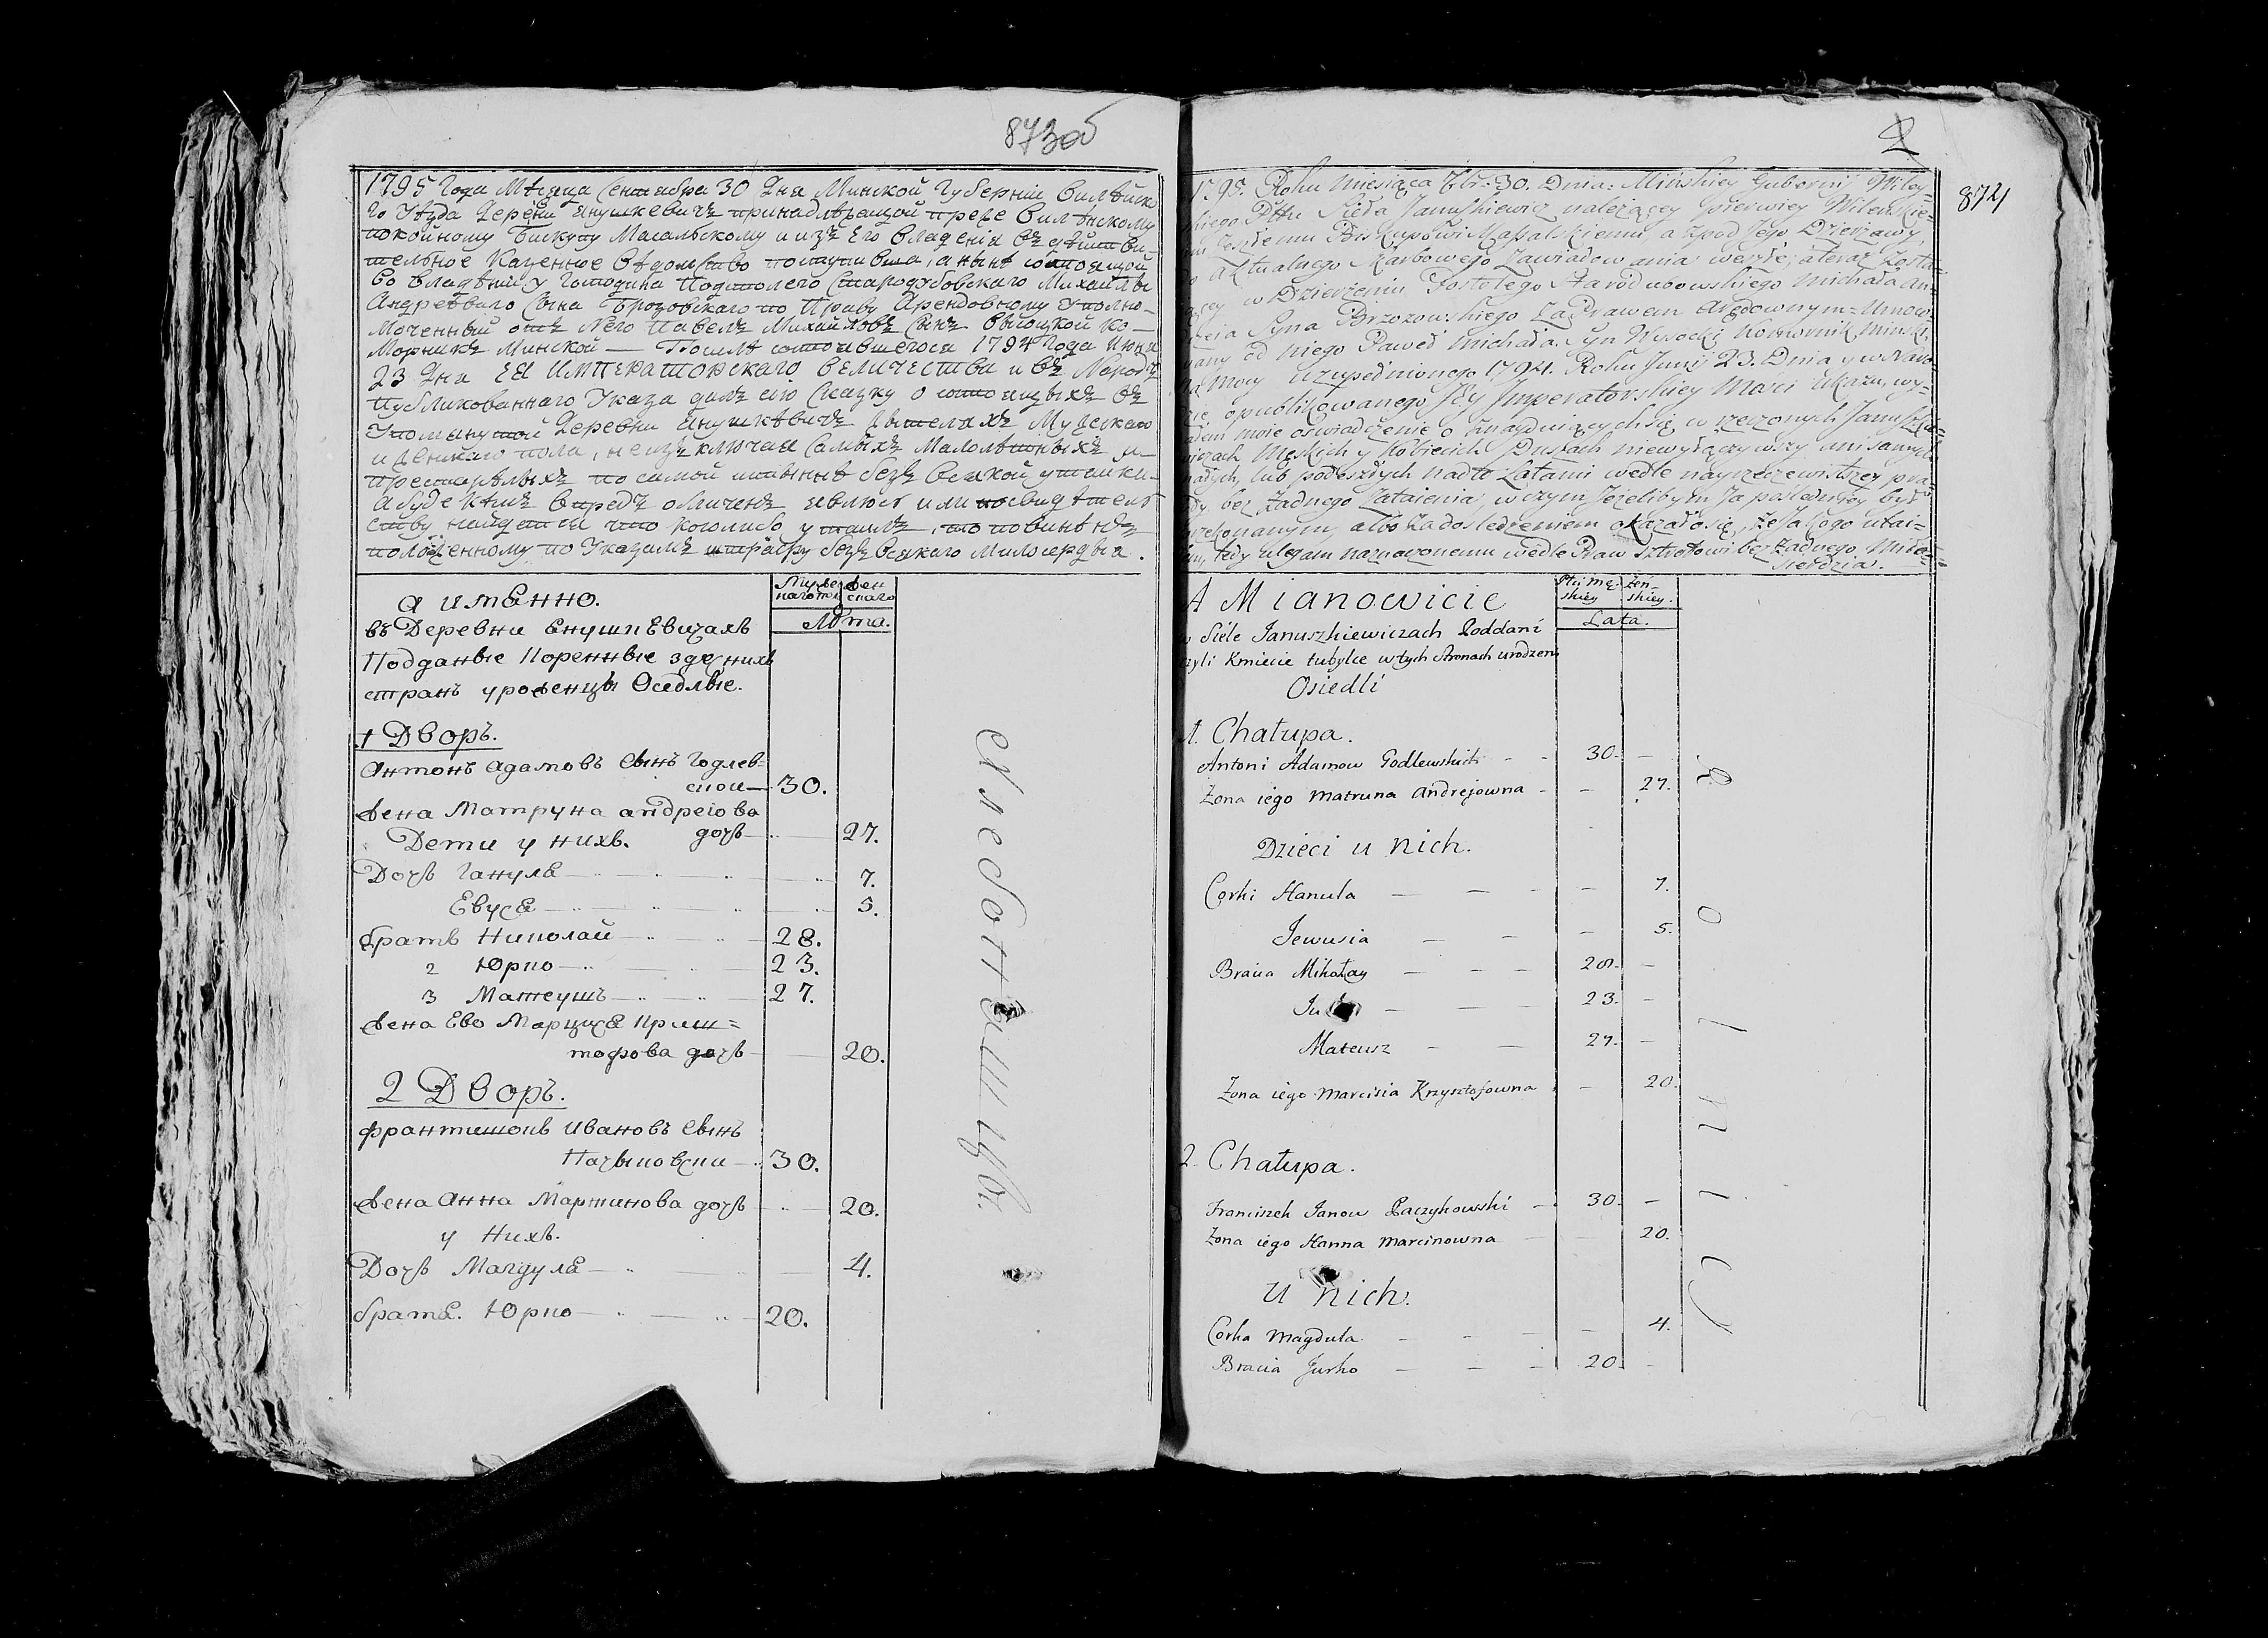 873об
1795 Года Месяца Сентебра 30 Дня Минской Губернии Вилейско
го Уезда Деревни Янушкевичъ принадлежащой преже Виленскому
покойному Бискупу Масальскому и изъ Его владения въ
тельное Казенное Ведомство поступивша, а ныне состоящой
во владении у Господина Подстолего Стародубовского Михайлы
Андреевего Сына Брозовскаго по Праву Арендовному Уполно-
моченный отъ Него Павелъ Михайловъ Сынъ Высоцкой Ко-
морникъ Минской — После состоявшегося 1794 Года Июня
23 Дня ЕЯ ИМПЕРАТОРСКАГО ВЕЛИЧЕСТВА и въ Народъ
Публикованнаго Указа даю сию Сказку о состоящихъ въ
Упомянутой Деревни Янушкевичъ жителяхъ Мужескаго
и женскаго пола, не изъключая Самыхъ Малолетныхъ и
престарелыхъ по самой истинне безъ всякой утайки
А буде кемъ впредъ обличенъ явлюсь или по свидетель
ству найдется что кого либо утаилъ, то повиненъ
положенному по Указамъ штрафу безъ всякаго Милосердыя.
а имѣнно.
Мужескаго женскаго
Лѣта.
въ Деревни Енушкевичахъ
Подданые Коренные здешнихъ
странъ уроженцы Оседлые.
1 Дворъ.
Антонъ Адамовъ сынъ Годлев-
ской — 30.
жена Матруна андреова
дочь — 27.
Дети у нихъ.
Дочь Ганула — 7.
Евуся — 5.
братъ Николай — 28.
2 Юрко — 23.
3 Матеушъ — 27.
жена Ево Марцися Криш=
тофова дочь — 20.
2 Дворъ.
франтишокъ Ивановъ сынъ
Пачыковски — 30.
жена Анна Мартинова дочь — 20.
у нихъ.
Дочь Магдуля — 4.
братя. Юрко — 20.
874
1795. Roku Miesiąca 7br: 30. Dnia. Mińskiey Guberni Wiley=
skiego Pttu Sioła Januszkiewicz należącey pierwiey Wileńskie=
mu Biskupowi Massalskiemu a zpod Jego Dzierżawy,
do aktualnego Skarbowego Zawiadowania weszłe, a teraz zosta=
iącey w Dzierżeniu Podstolego Staroduboowskiego Michała An=
drzeia Syna Brzozowskiego za Prawem Arędownym = Umoco=
wany od niego Paweł Michała Syn Wysocki Komornik Miński,
na mocy uzupełnionego 1794. Roku Junij 23. Dnia y w Naro=
dzie opublikowanego Jey Imperatorskiey Mości Ukazu, wy=
daiem moie oświadczenie o znayduiących się w rzeczonych Januszkie=
wiczach Męskich y Kobiecich Duszach niewyłączywszy mi samych
małych, lub podeszłych nadto Latami wedle nayrzeczewistszey pra=
wdy bez żadnego zataienia, w czym Jeżelibym Ja poźledniey był
przekonanym, albo za dośledzeniem okazało się, że Ja kogo utai=
łem, tedy ulegam naznaczonemu wedle Praw Sztrafowi bez żadnego Miło=
sierdzia.
A Mianowicie
Płci Mę- skiey Żen- skiey.
Lata.
w Siele Januszkiewiczach Poddani
czyli Kmiecie tubylce w tych Stronach urodzeni
Osiedli
1. Chałupa.
Antoni Adamow Godlewski — 30. —
Żona iego Matruna Andrejowna — 27.
Dzieci u nich.
Corki Hanula — 7.
Jewusia — 5.
Bracia Mikołay — 28. —
23. —
Mateusz — 27. —
Żona iego Marcisia Krzysztofowna — 20.
2. Chałupa.
Franciszek Janow Paczykowski — 30. —
Żona iego Hanna Marcinowna — 20.
u nich.
Corka Magdula — 4.
Bracia Jurko — 20. —